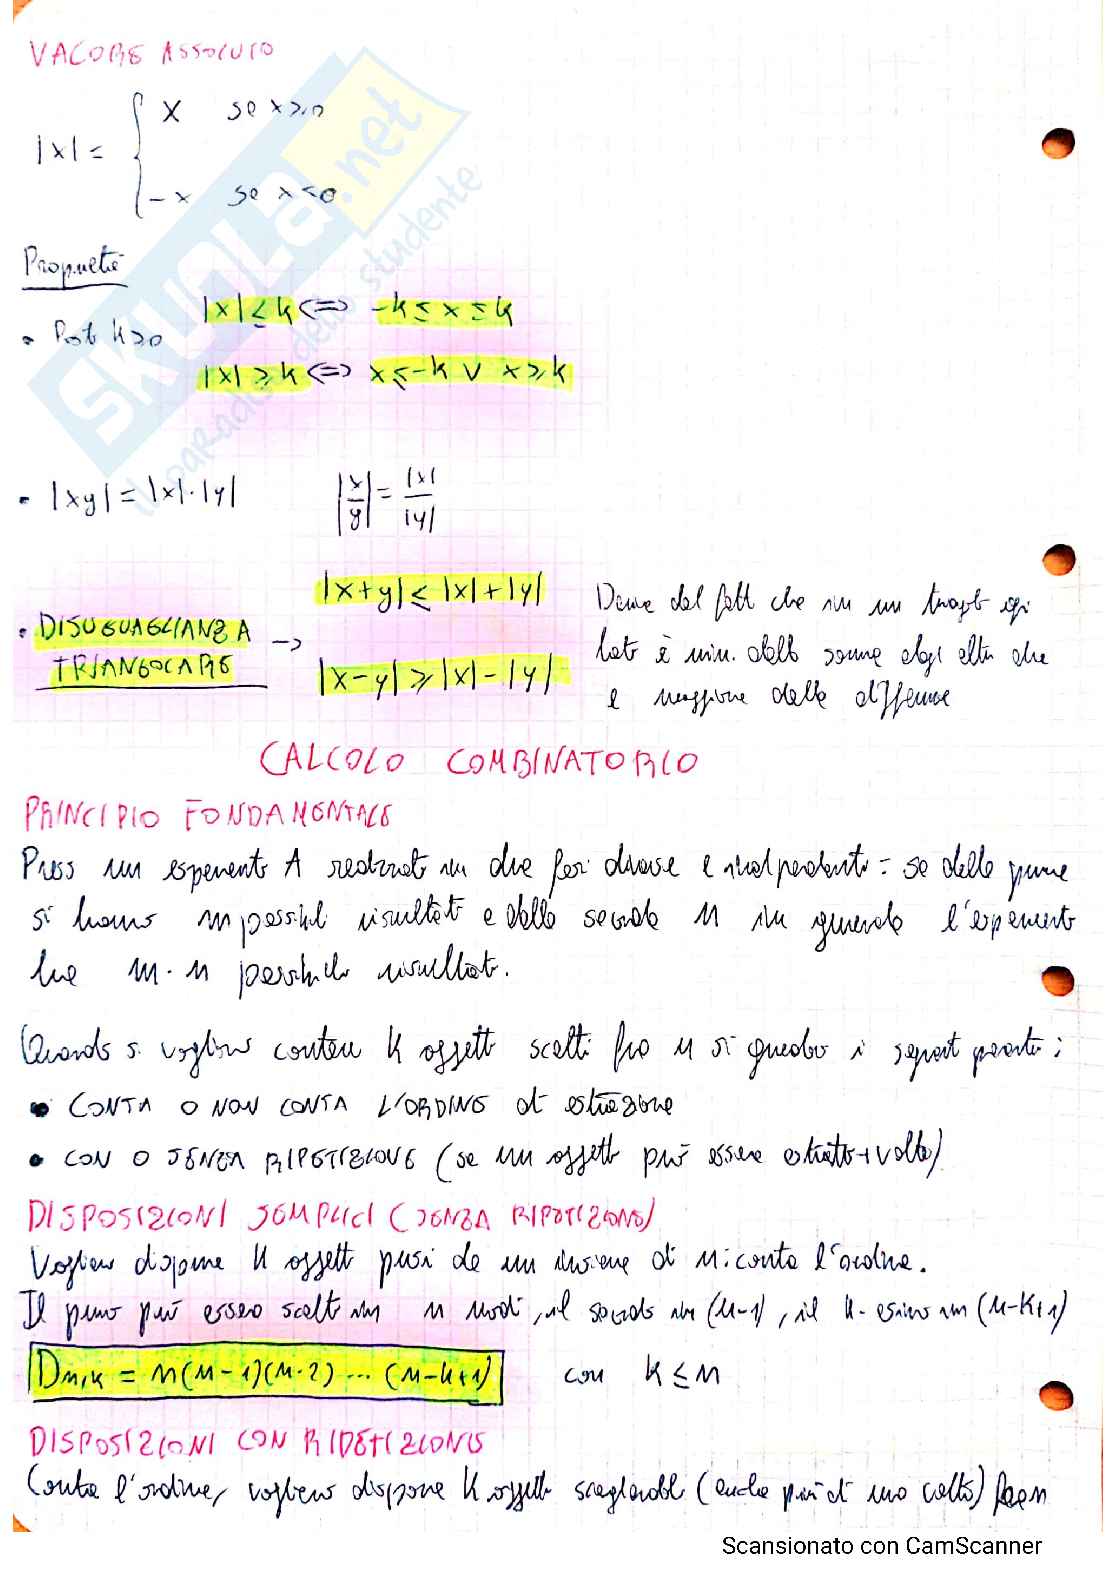 VALORE ASSOLUTO
|x| = { x se x ≥ 0
-x se x < 0
Proprietà
|x| ≤ k <=> -k ≤ x ≤ k
• Posto k ≥ 0
|x| ≥ k <=> x ≤ -k ∨ x ≥ k
• |xy| = |x|·|y| |x/y| = |x|/|y|
|x+y| ≤ |x|+|y|
• DISUGUAGLIANZA TRIANGOLARE →
|x-y| ≥ |x|-|y|
Deriva dal fatto che in un triangolo ogni
lato è min. della somma degli altri due
e maggiore della differenza
CALCOLO COMBINATORIO
PRINCIPIO FONDAMENTALE
Preso un esperimento A realizzato in due fasi diverse e indipendenti: se dalla prima
si hanno m possibili risultati e dalla seconda n in generale l'esperimento
ha m·n possibili risultati.
Quando si vogliono contare k oggetti scelti fra n si guarda i seguenti
• CONTA O NON CONTA L'ORDINE di estrazione
• CON O SENZA RIPETIZIONE (se un oggetto può essere estratto + volte)
DISPOSIZIONI SEMPLICI (SENZA RIPETIZIONE)
Vogliamo disporre k oggetti presi da un insieme di n: conta l'ordine.
Il primo può essere scelto in n modi, il secondo in (n-1), il k-esimo in (n-k+1)
Dn,k = n(n-1)(n-2) ... (n-k+1) con k ≤ n
DISPOSIZIONI CON RIPETIZIONE
Conta l'ordine, vogliamo disporre k oggetti (anche più di una volta) fra n
SKUOLA.net
il paradiso dello studente
Scansionato con CamScanner